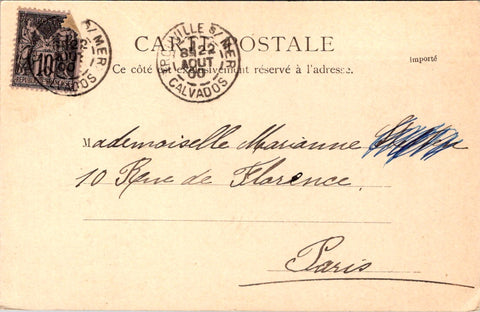 10
S/ MER
22
CALVADOS
VILLE S/ MER
8E 22
AOUT
00
CALVADOS
CARTE POSTALE
Ce côté est exclusivement réservé à l'adresse.
Importé
Mademoiselle Marianne
10 Rue de Florence.
Paris